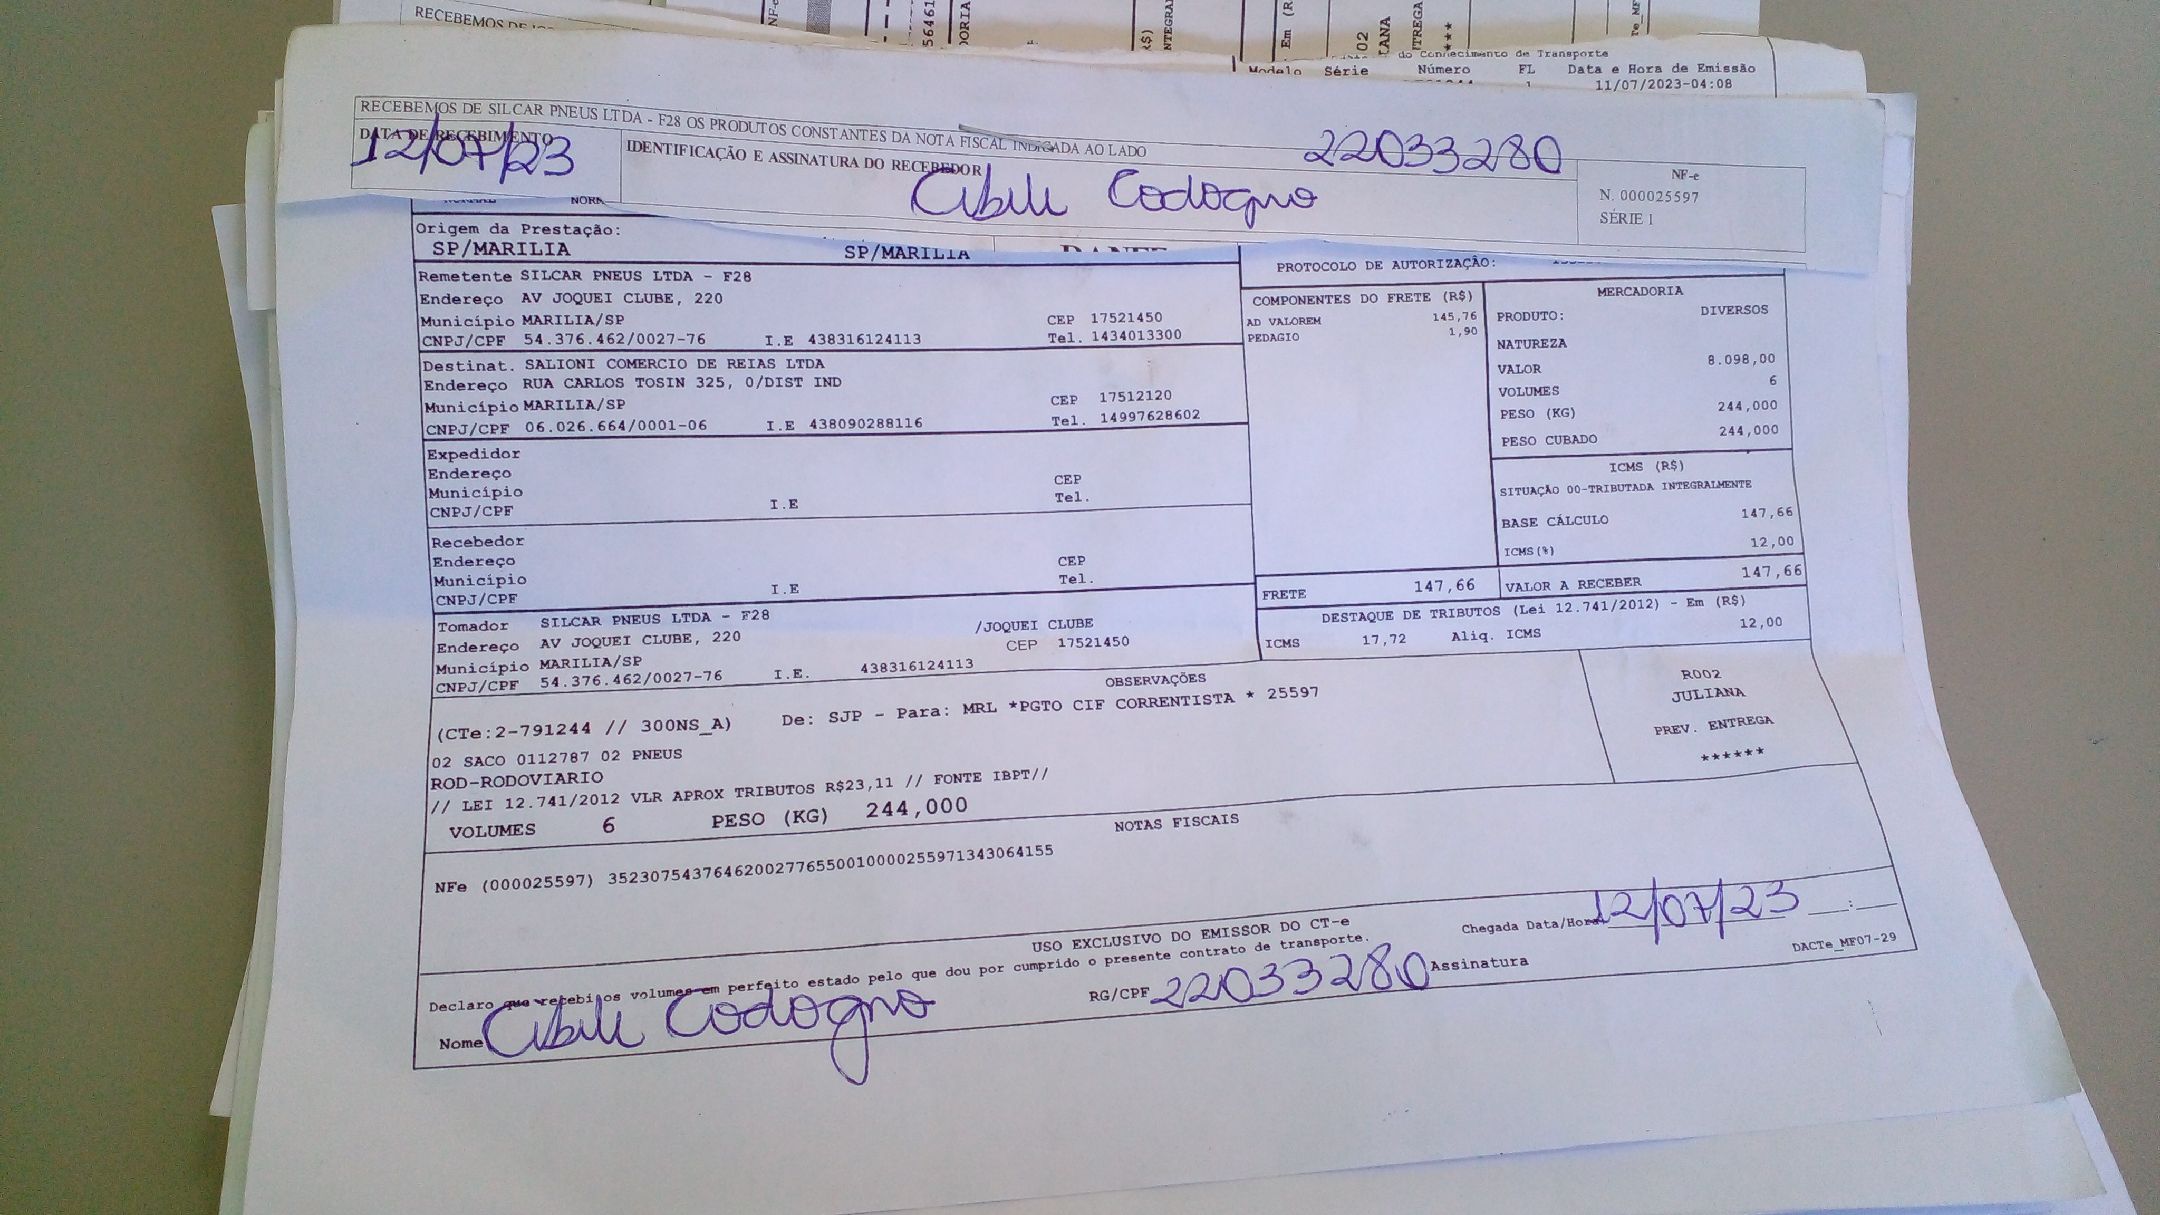 RECEBEMOS DE
56461
ORIA
R$)
NTEGRAL
Em (R
02
IANA
TREGA
***
do Conhecimento de Transporte
Modelo Série Número FL Data e Hora de Emissão
1 11/07/2023-04:08
RECEBEMOS DE SILCAR PNEUS LTDA - F28 OS PRODUTOS CONSTANTES DA NOTA FISCAL INDICADA AO LADO
DATA DE RECEBIMENTO
12/07/23
IDENTIFICAÇÃO E ASSINATURA DO RECEBEDOR
22033280
Codogno
NF-e
N. 000025597
SÉRIE 1
Origem da Prestação:
SP/MARILIA SP/MARILIA
PROTOCOLO DE AUTORIZAÇÃO:
Remetente SILCAR PNEUS LTDA - F28
Endereço AV JOQUEI CLUBE, 220
Município MARILIA/SP CEP 17521450
CNPJ/CPF 54.376.462/0027-76 I.E 438316124113 Tel. 1434013300
Destinat. SALIONI COMERCIO DE REIAS LTDA
Endereço RUA CARLOS TOSIN 325, 0/DIST IND
Município MARILIA/SP CEP 17512120
CNPJ/CPF 06.026.664/0001-06 I.E 438090288116 Tel. 14997628602
Expedidor
Endereço
Município CEP
CNPJ/CPF I.E Tel.
Recebedor
Endereço
Município CEP
CNPJ/CPF I.E Tel.
Tomador SILCAR PNEUS LTDA - F28
Endereço AV JOQUEI CLUBE, 220 /JOQUEI CLUBE
Município MARILIA/SP CEP 17521450
CNPJ/CPF 54.376.462/0027-76 I.E. 438316124113
COMPONENTES DO FRETE (R$)
AD VALOREM 145,76
PEDAGIO 1,90
MERCADORIA
PRODUTO: DIVERSOS
NATUREZA
VALOR 8.098,00
VOLUMES 6
PESO (KG) 244,000
PESO CUBADO 244,000
ICMS (R$)
SITUAÇÃO 00-TRIBUTADA INTEGRALMENTE
BASE CÁLCULO 147,66
ICMS(%) 12,00
FRETE 147,66 VALOR A RECEBER 147,66
DESTAQUE DE TRIBUTOS (Lei 12.741/2012) - Em (R$)
ICMS 17,72 Aliq. ICMS 12,00
OBSERVAÇÕES
(CTe:2-791244 // 300NS_A) De: SJP - Para: MRL *PGTO CIF CORRENTISTA * 25597
02 SACO 0112787 02 PNEUS
ROD-RODOVIARIO
// LEI 12.741/2012 VLR APROX TRIBUTOS R$23,11 // FONTE IBPT//
VOLUMES 6 PESO (KG) 244,000
R002
JULIANA
PREV. ENTREGA
******
NOTAS FISCAIS
NFe (000025597) 35230754376462002776550010000255971343064155
USO EXCLUSIVO DO EMISSOR DO CT-e
Declaro que recebi os volumes em perfeito estado pelo que dou por cumprido o presente contrato de transporte.
Chegada Data/Hora 12/07/23 __:__
Nome Codogno RG/CPF 22033280 Assinatura
DACTe_MF07-29